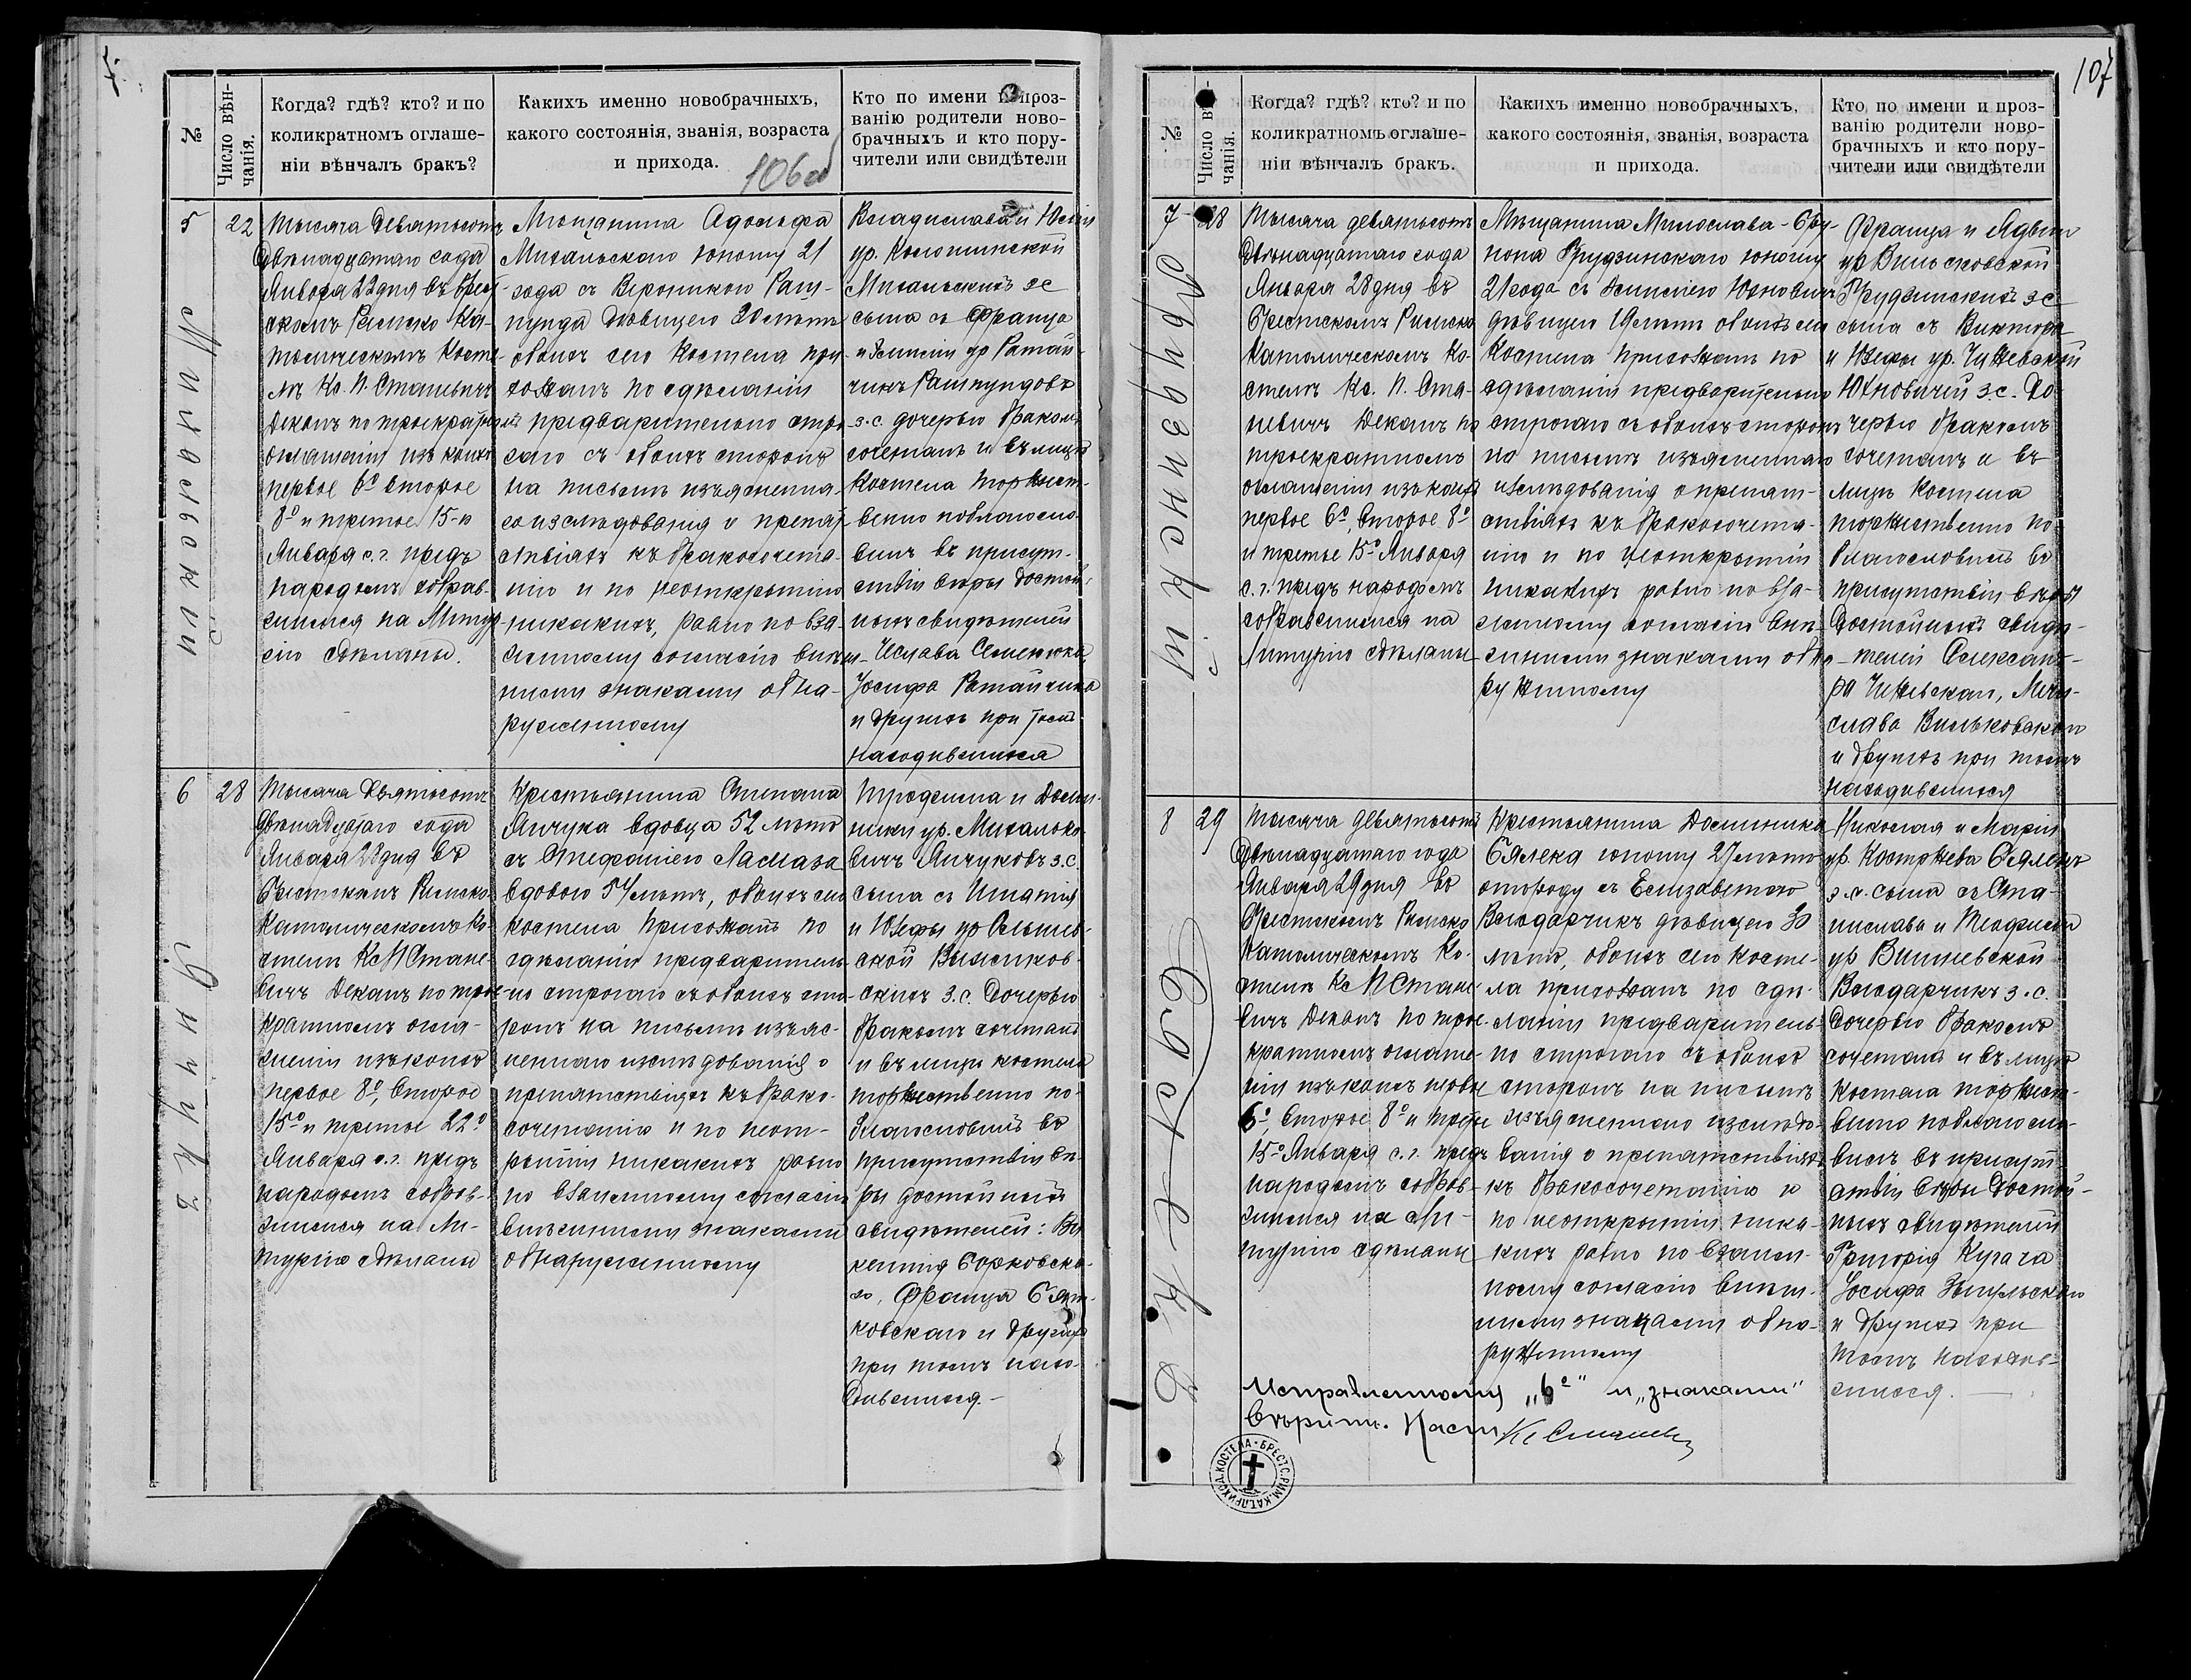 №
Число вѣн-
чанія.
Когда? гдѣ? кто? и по
коликратномъ оглаше-
ніи вѣнчалъ бракъ?
Какихъ именно новобрачныхъ,
какого состоянія, званія, возраста
и прихода.
106об
Кто по имени и проз-
ванію родители ново-
брачныхъ и кто пору-
чители или свидѣтели
5
22
Тысяча девятьсотъ
двѣнадцатаго года
Января 22 дня въ Брест-
скомъ Римско Ка-
толическомъ Косте-
лѣ Кс. П. Станевичъ
Деканъ по троекратномъ
оглашеніи изъ коихъ
первое 6º второе
8º и третье 15-о
Января с. г. предъ
народомъ собрав-
шимся на Литур-
гію сдѣланы.
Мѣщанина Адольфа
Михальскаго юношу 21
года съ Вероникою Раш-
пунда дѣвицею 20 лѣтъ
обоихъ сего Костела при-
хожанъ по сдѣланіи
предварительно стро-
гаго съ обоихъ сторонъ
на письмѣ изъясненна-
го изслѣдованія о препят-
ствіяхъ къ бракосочета-
нію и по неоткрытію
никакихъ, равно по вза-
имному согласію внѣш-
ними знаками обна-
руженному
Владислава и Юзефы
ур.
Михальскихъ з с
сына съ Франца
и ур Ратай-
чикъ Рашпундовъ
з. с. дочерью бракомъ
сочеталъ и въ лицѣ
Костела торжест-
венно поблагосло-
вилъ въ присут-
ствіи вѣры достой-
ныхъ свидѣтелей
Іосифа Ратайчика
и другихъ при томъ
находившихся
Михальскій
6
28
Тысяча девятьсотъ
двѣнадцатаго года
Января 28 дня въ
Брестскомъ Римско
Католическомъ Ко-
стелѣ Кс П Стане-
вичъ Деканъ по трое-
кратномъ огла-
шеніи изъ коихъ
первое 8º, второе
15º и третье 22º
Января с. г. предъ
народомъ собрав-
шимся на Ли-
тургію сдѣланы
Крестьянина Степана
Янчука вдовца 52 лѣтъ
съ Стефаніею
вдовою 54 лѣтъ, обоихъ сего
костела прихожанъ по
сдѣланіи предваритель-
но строгаго съ обоихъ сто-
ронъ на письмѣ изъяс-
неннаго изслѣдованія о
препятствіяхъ къ брако-
сочетанію и по неот-
рытіи никакихъ равно
по взаимному согласію
внѣшними знаками
обнаруженному
Трофима и Доми-
ники ур. Михалько-
вичъ Янчуковъ з. с
сына съ Игнатія
и Юзефы ур
скихъ з. с. дочерью
бракомъ сочеталъ
и въ лицѣ костела
торжественно по-
благословилъ въ
присутствіи вѣ-
ры достойныхъ
свидѣтелей: Ви-
кентія Борковска-
го, Франца Бял-
ковскаго и другихъ
при томъ нахо-
дившихся.-
Янчукъ
107
№
Число вѣн-
чанія.
Когда? гдѣ? кто? и по
коликратномъ оглаше-
ніи вѣнчалъ бракъ.
Какихъ именно новобрачныхъ,
какого состоянія, званія, возраста
и прихода.
Кто по имени и проз-
ванію родители ново-
брачныхъ и кто пору-
чители или свидѣтели
7
28
Тысяча девятьсотъ
двѣнадцатаго года
Января 28 дня въ
Брестскомъ Римско
Католическомъ Ко-
стелѣ Кс. П. Ста-
невичъ Деканъ по
троекратномъ
оглашеніи изъ коихъ
первое 6º, второе 8º
и третье 15º Января
с. г. предъ народомъ
собравшимся на
Литургію сдѣланы
Мѣщанина Милослава-Бру-
нона Грудзинскаго юношу
21 года съ Юхновичъ
дѣвицею 19 лѣтъ обоихъ сего
Костела прихожанъ по
сдѣланіи предварительно
строгаго съ обоихъ сторонъ
на письмѣ изъясненнаго
изслѣдованія о препят-
ствіяхъ къ бракосочета-
нію и по неоткрытіи
никакихъ равно по вза-
имному согласію внѣ-
шними знаками обна-
руженному
Франца и Ядвиги
ур Вильковской
Грудзинскихъ з с
сына съ Виктора
и Юзефы ур. Чижевской
Юхновичей з. с. до-
черью бракомъ
сочеталъ и въ
лицѣ Костела
торжественно по-
благословилъ въ
присутствіи вѣры
достойныхъ свидѣ-
телей Александ-
ра Чижевскаго, Мечи-
слава Вильковскаго
и другихъ при томъ
находившихся
Грудзинскій
8
29
Тысяча девятьсотъ
двѣнадцатаго года
Января 29 дня въ
Брестскомъ Римско
Католическомъ Ко-
стелѣ Кс П Стане-
вичъ Деканъ по трое-
кратномъ оглаше-
ніи изъ коихъ первое
6º, второе 8º и третье
15º Января с. г. предъ
народомъ собрав-
шимся на Ли-
тургію сдѣланы
Крестьянина Доминика
Бялека юношу 27 лѣтъ
отъроду съ Елизаветою
Влодарчикъ дѣвицею 30
лѣтъ, обоихъ сего косте-
ла прихожанъ по сдѣ-
ланіи предваритель-
но строгаго съ обоихъ
сторонъ на письмѣ
изъясненнаго изслѣдо-
ванія о препятствіяхъ
къ бракосочетанію и
по неоткрытіи ника-
кихъ равно по взаим-
ному согласію внѣш-
ними знаками обна-
руженному
Николая и Маріи
ур. Костржева Бялекъ
з. с. сына съ Ста-
нислава и Теофиліи
ур Вишневской
Влодарчикъ з. с.
дочерью бракомъ
сочеталъ и въ лицѣ
костела торжест-
венно поблагосло-
вилъ въ присут-
ствіи вѣры достой-
ныхъ свидѣтелей
Григорія Кугача
Іосифа
и другихъ при
томъ находив-
шихся.
Бялекъ
Исправленному „6º" и „знаками"
вѣрить. Наст. Кс Станевичъ
БРЕСТС. РИМ. КАТ. ПРИХОД. КОСТЕЛА